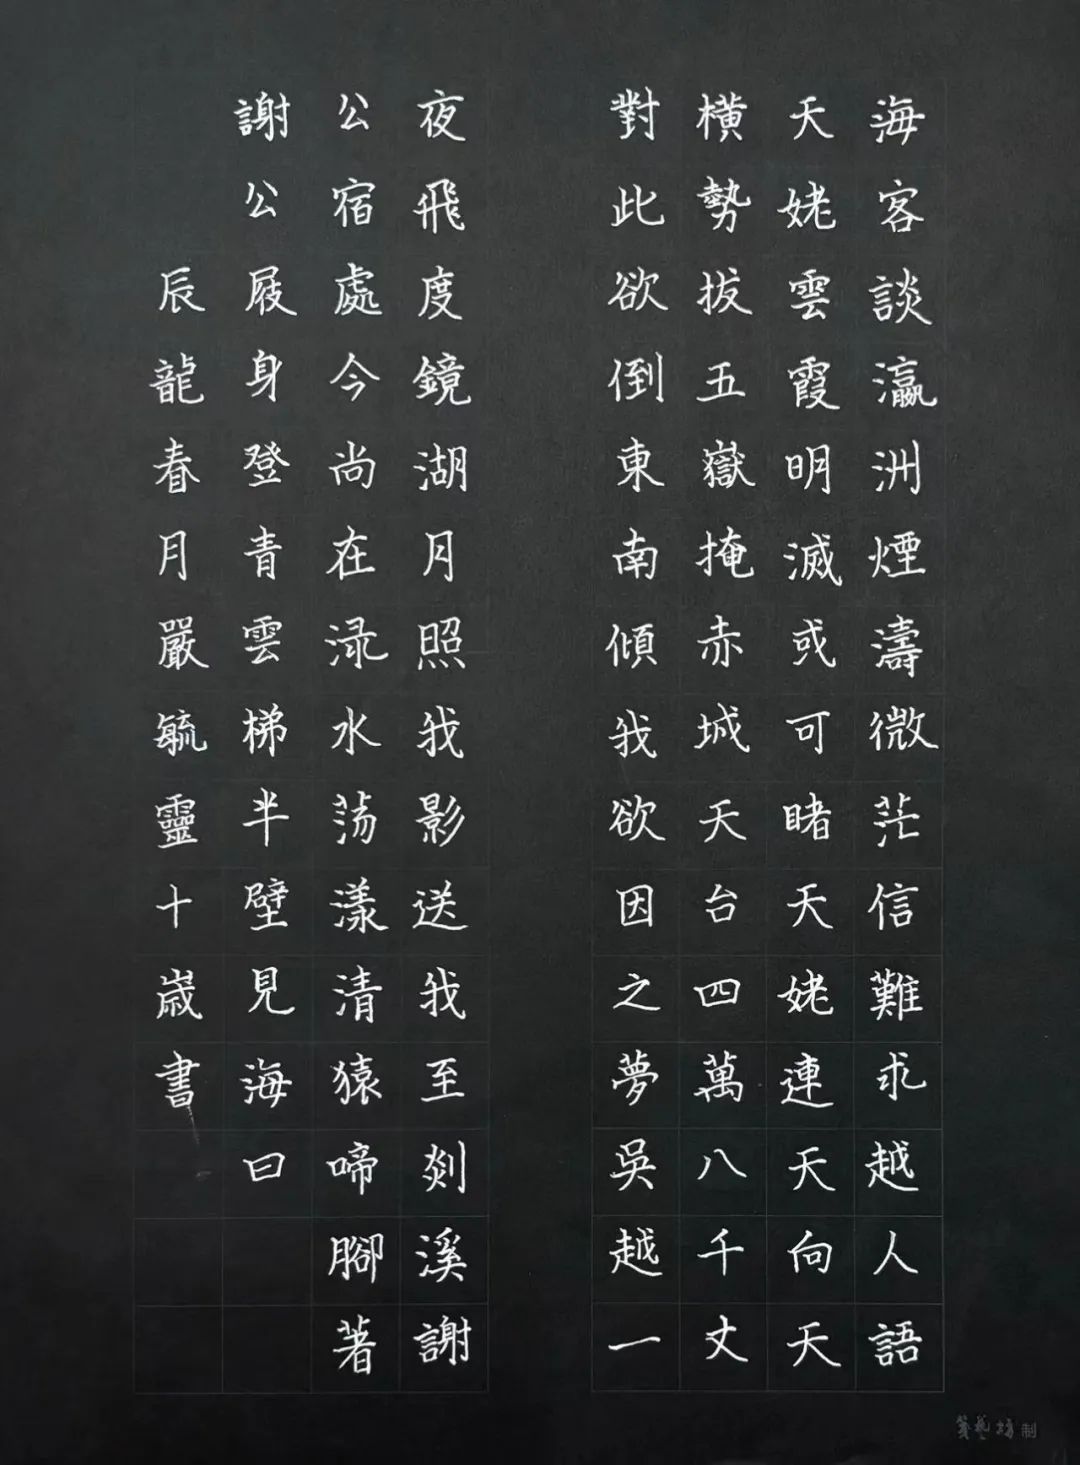 海客談瀛洲煙濤微茫信難求越人語
天姥雲霞明滅或可睹天姥連天向天
橫勢拔五嶽掩赤城天台四萬八千丈
對此欲倒東南傾我欲因之夢吳越一
夜飛度鏡湖月照我影送我至剡溪謝
公宿處今尚在渌水蕩漾清猿啼腳著
謝公屐身登青雲梯半壁見海日
辰龍春月嚴毓靈十歲書
箋藝坊制